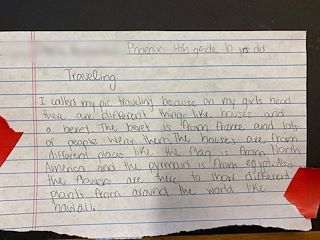 Phoenix 4th grade 10 yrs old
Traveling
I called my pic traveling because on my girls head
there are different things like houses and
a beret. The beret is from france and lots
of people wear them. The houses are from
different places like the flag is from North
America and the pyramid is from egypt. Also
the flowers are there to show different
plants from around the world like
hawaii.